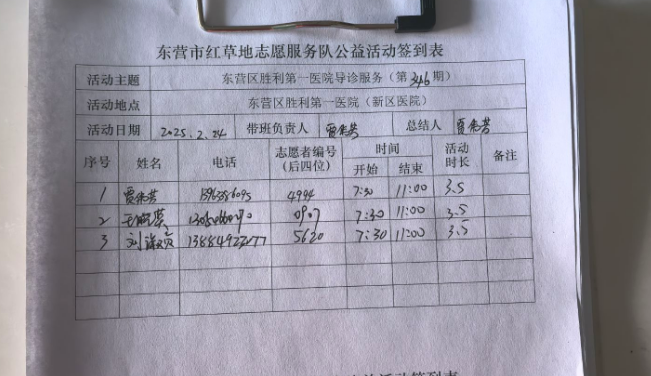 东营市红草地志愿服务队公益活动签到表
活动主题 东营区胜利第一医院导诊服务（第346期）
活动地点 东营区胜利第一医院（新区医院）
活动日期 2025.2.24 带班负责人 贾 总结人 贾
序号 姓名 电话 志愿者编号（后四位） 时间 开始 结束 活动时长 备注
1 贾 4994 7:30 11:00 3.5
2 王 0907 7:30 11:00 3.5
3 刘 13884927277 5620 7:30 11:00 3.5